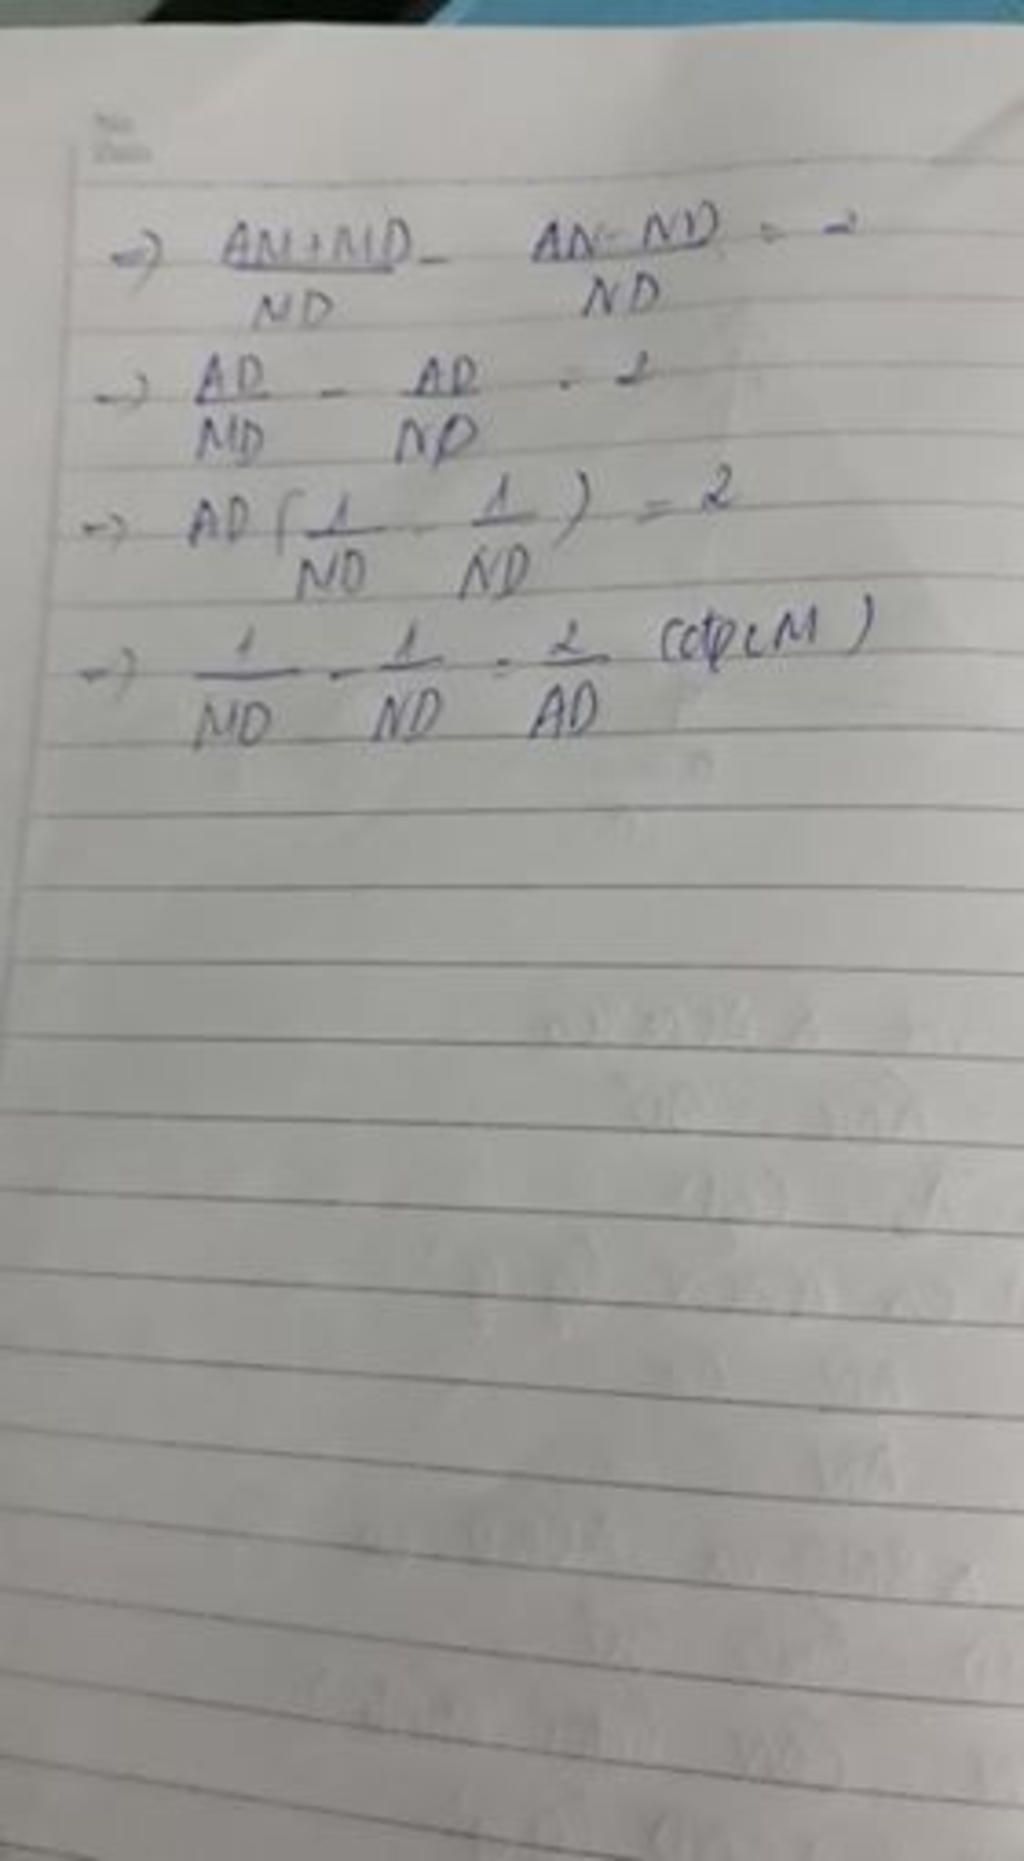 No.
Date
=> AM+MD/MD - AN-ND/ND = 2
=> AD/MD - AD/ND = 2
=> AD(1/MD - 1/ND) = 2
=> 1/MD - 1/ND = 2/AD (đpcM)